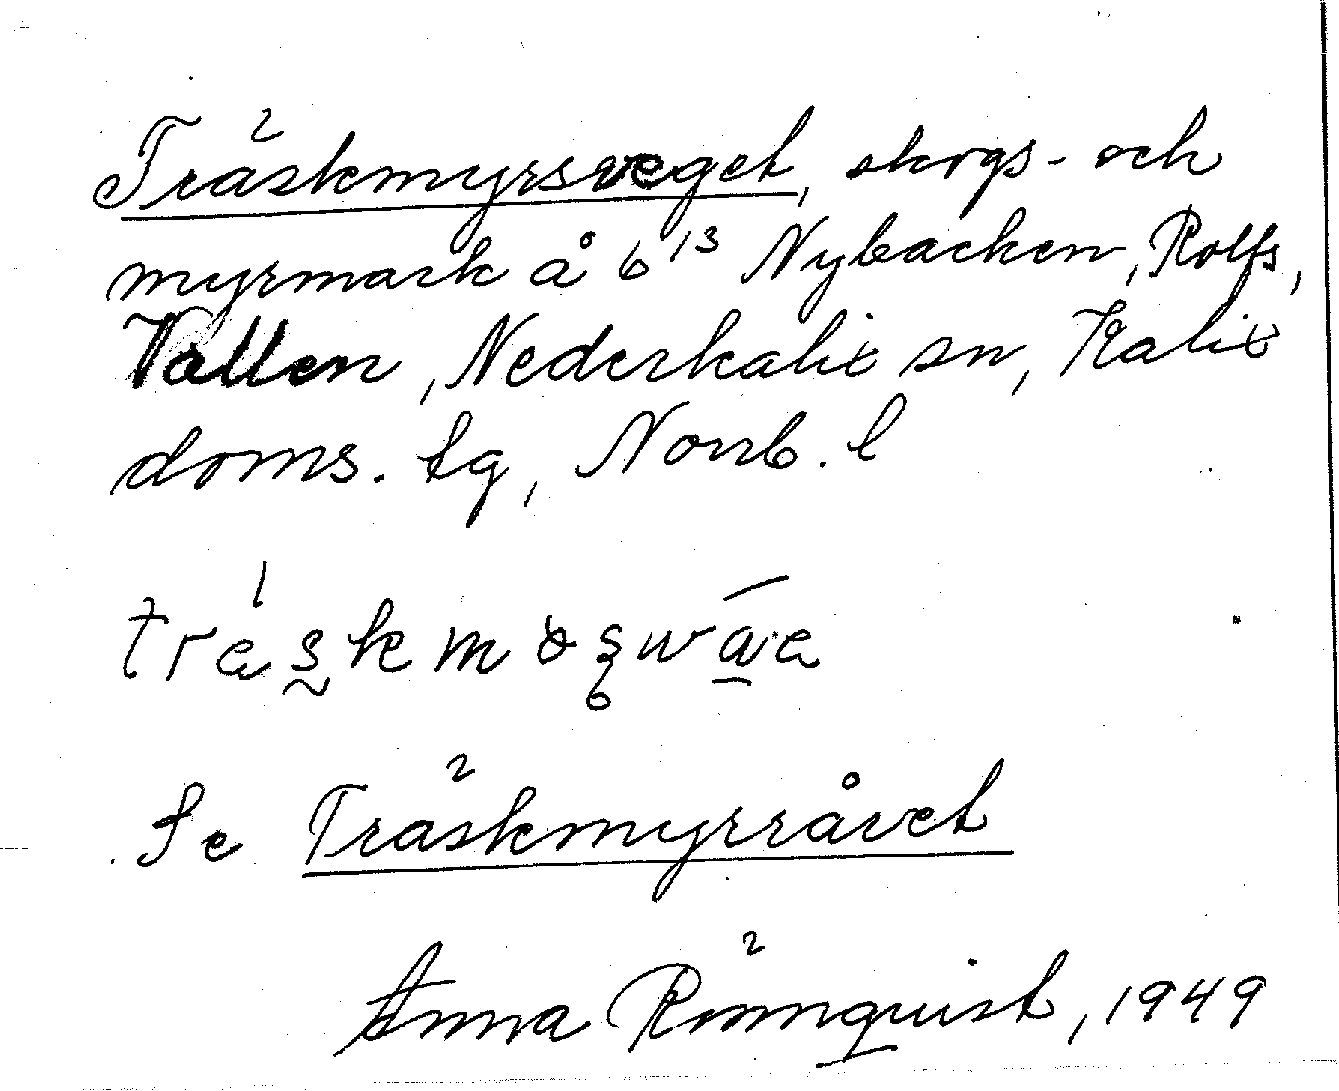 Träskmyrsveget, skogs- och
myrmark å 6¹³ Nybacken, Rolfs,
Vallen, Nederkalix sn, Kalix
doms. tg, Norrb. l
Se Träskmyrråvet
Anna Rönnquist, 1949